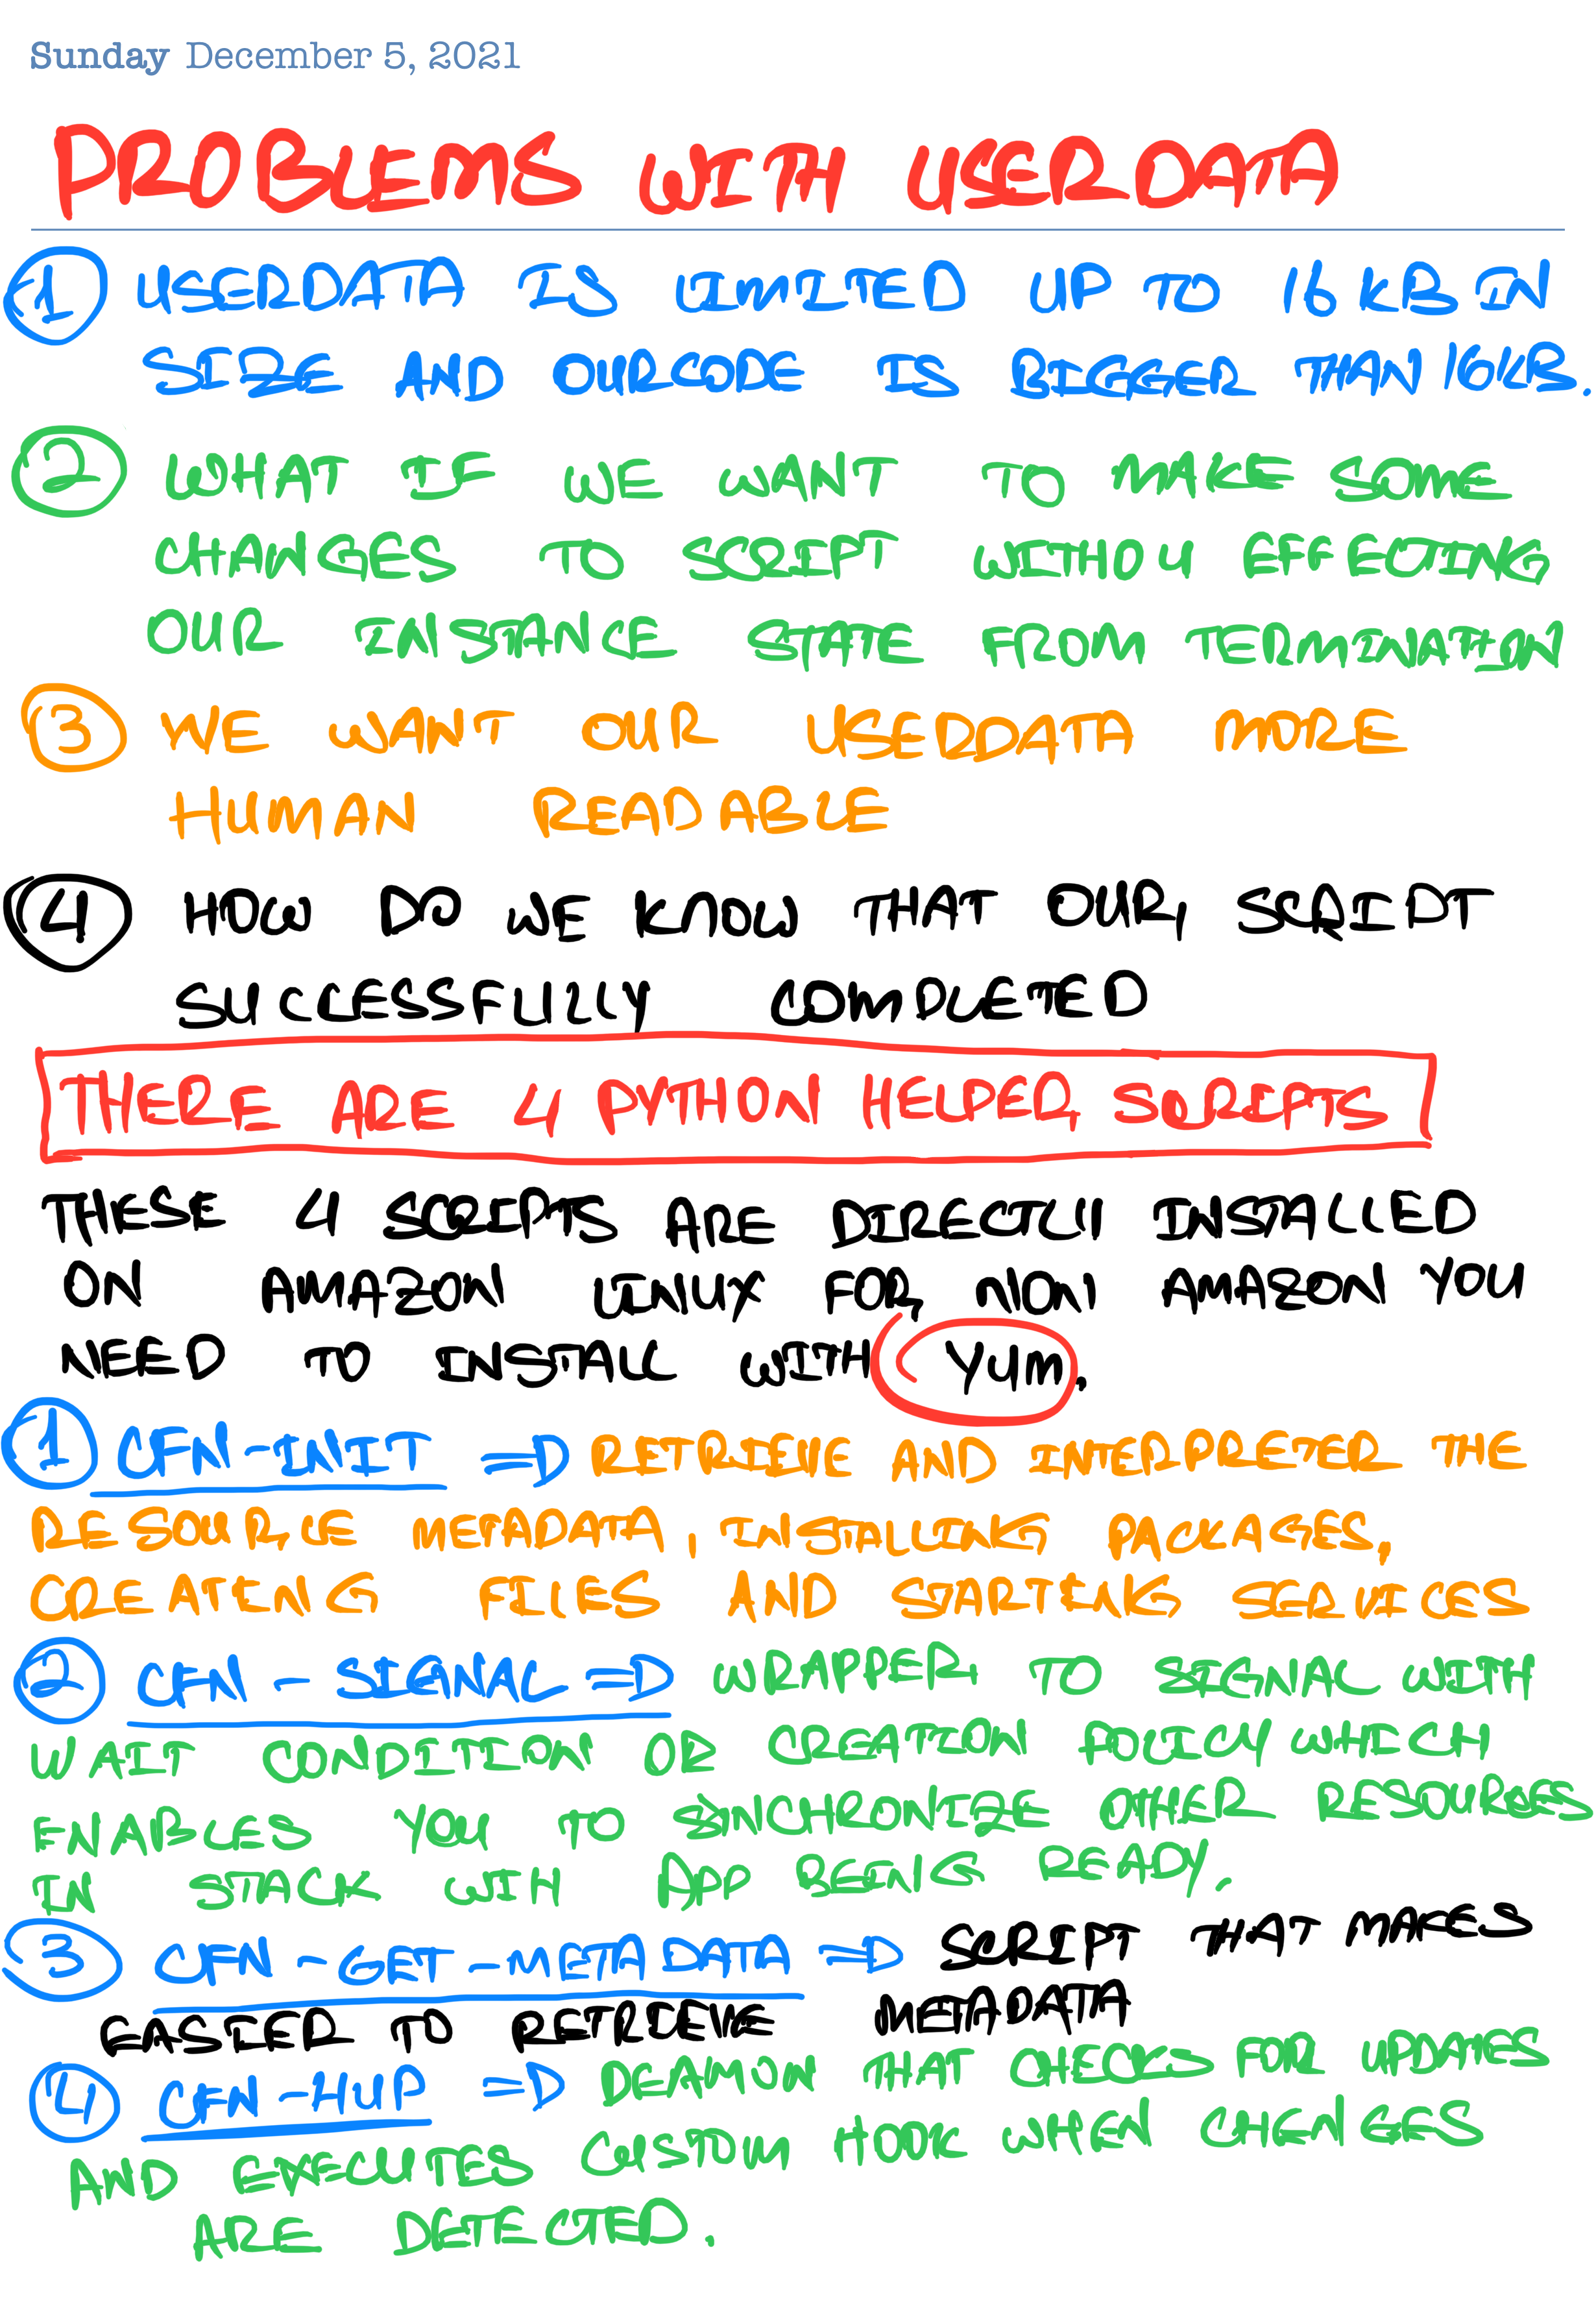 Sunday December 5, 2021
PROBLEMS WITH USERDATA
1 USERDATA IS LIMITED UP TO 16 KB IN
SIZE AND OUR CODE IS BIGGER THAN 16KB.
2 WHAT IF WE WANT TO MAKE SOME
CHANGES TO SCRIPT WITHOU EFFECTING
OUR INSTANCE STATE FROM TERMINATION
3 WE WANT OUR USERDDATA MORE
HUMAN READABLE
4 HOW DO WE KNOW THAT OUR SCRIPT
SUCCESSFULLY COMPLETED
THERE ARE 4 PYTHON HELPER SCRIPTS
THESE 4 SCRIPTS ARE DIRECTLY INSTALLED
ON AMAZON LINUX FOR NON AMAZON YOU
NEED TO INSTALL WITH YUM.
1 CFN-INIT => RETRIEVE AND INTERPRETER THE
RESOURCE METADATA, INSTALLING PACKAGES,
CREATING FILES AND STARTING SERVICES
2 CFN-SIGNAL => WRAPPER TO SIGNAL WITH
WAIT CONDITION OR CREATION POLICY WHICH
ENABLES YOU TO SYNCHRONIZE OTHER RESOURCES
IN STACK WITH APP BEINIG READY.
3 CFN-GET-METADATA => SCRIPT THAT MAKES
EASIER TO RETRIEVE METADATA
4 CFN-HUP => DEAMON THAT CHECKS FOR UPDATES
AND EXECUTES CUSTOM HOOK WHEN CHENGES
ARE DETECTED.